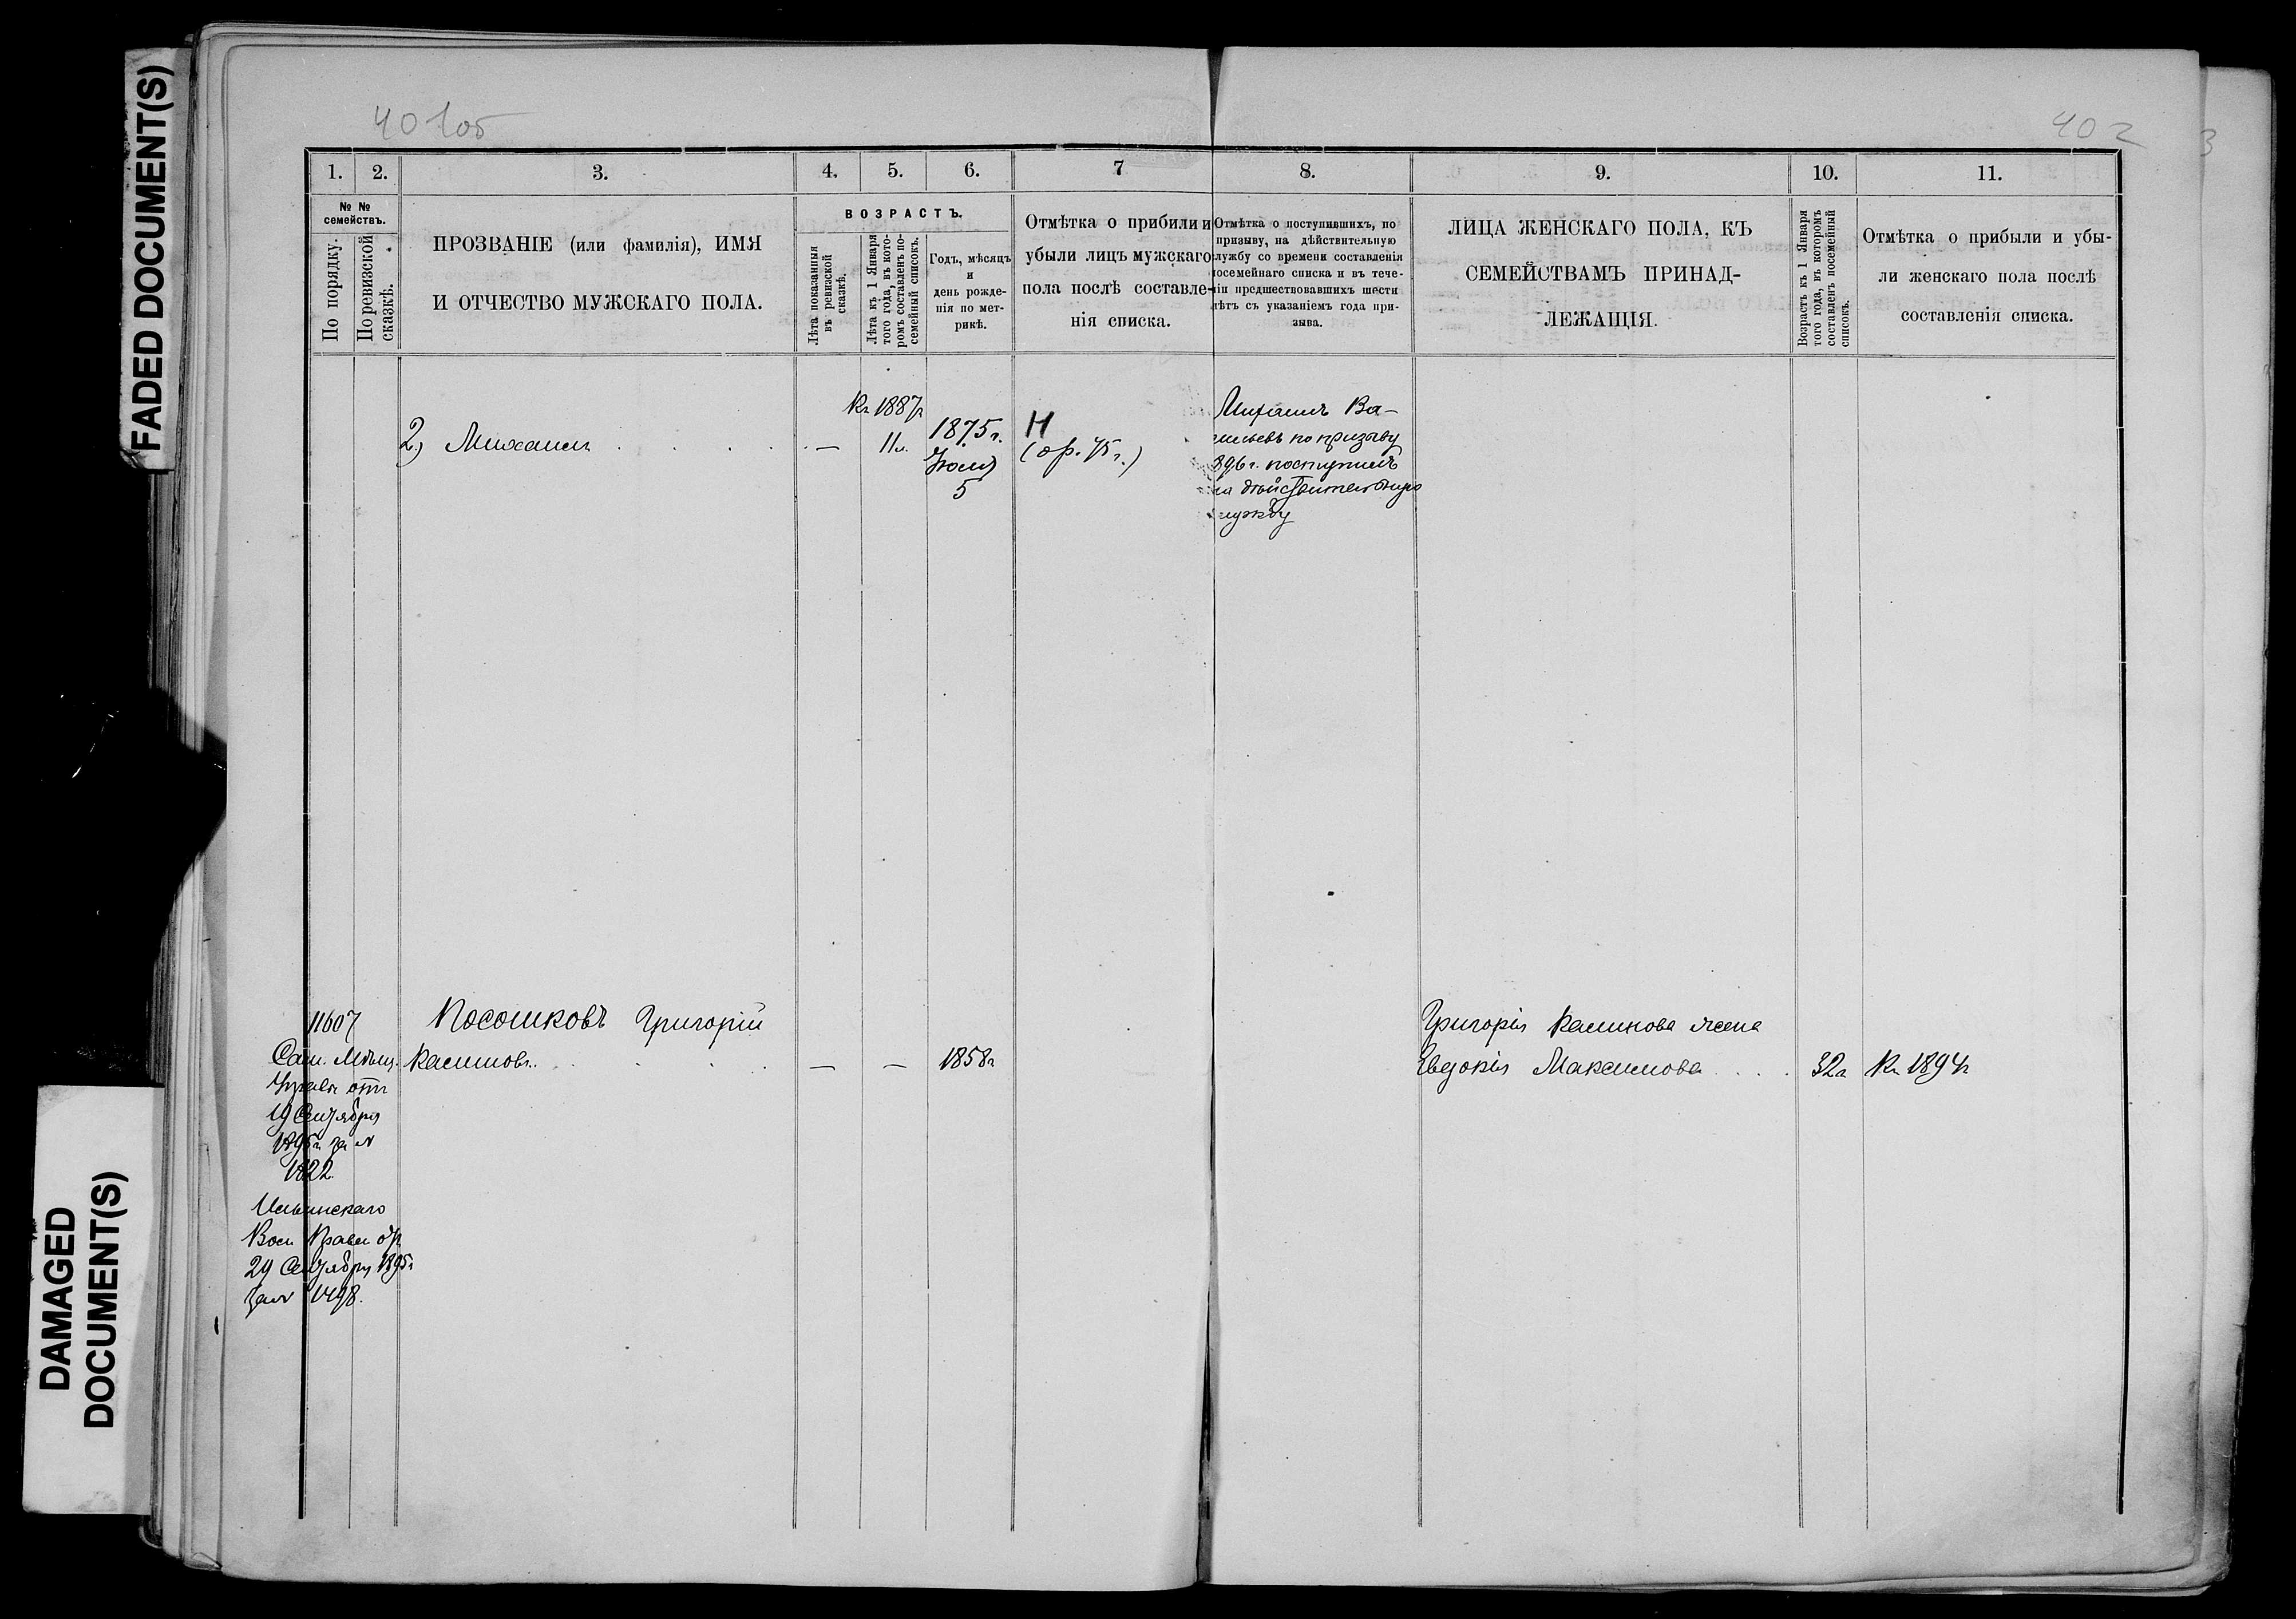 FADED DOCUMENT(S)
DAMAGED
DOCUMENT(S)
402
3
1.
2.
3.
4.
5.
6.
7
8.
9.
10.
11.
№ №
семействъ.
По порядку.
По ревизской
сказкѣ.
ПРОЗВАНІЕ (или фамилія), ИМЯ
И ОТЧЕСТВО МУЖСКАГО ПОЛА.
ВОЗРАСТЪ.
Лѣта показанныя
въ ревизской
сказкѣ.
Лѣта къ 1 Января
того года, въ кото-
ромъ составленъ по-
семейный списокъ.
Годъ, мѣсяцъ
и
день рожде-
нія по мет-
рикѣ.
Отмѣтка о прибыли и
убыли лицъ мужскаго
пола послѣ составле-
нія списка.
Отмѣтка о поступившихъ, по
призыву, на дѣйствительную
службу со времени составленія
посемейнаго списка и въ тече-
ніи предшествовавшихъ шести
лѣтъ съ указаніемъ года при-
зыва.
ЛИЦА ЖЕНСКАГО ПОЛА, КЪ
СЕМЕЙСТВАМЪ ПРИНАД-
ЛЕЖАЩІЯ.
Возрастъ къ 1 Января
того года, въ которомъ
составленъ посемейный
списокъ.
Отмѣтка о прибыли и убы-
ли женскаго пола послѣ
составленія списка.
2) Михаилъ
Къ 1887г
— 11л.
1875г.
Іюля
5
Н
Михаилъ Ва-
сильевъ по призыву
896г. поступилъ
на дѣйствительную
службу
11607
Посошковъ Григорій
— — 1858г
Сам. Мѣщ.
Управы отъ
19 Сентября
1895г за №
1822.
Ильинскаго
Вол Правл отъ
29 Сентября 1895г
за № 1498.
Григорія жена
Евдокія Максимова
32л
Къ 1894г